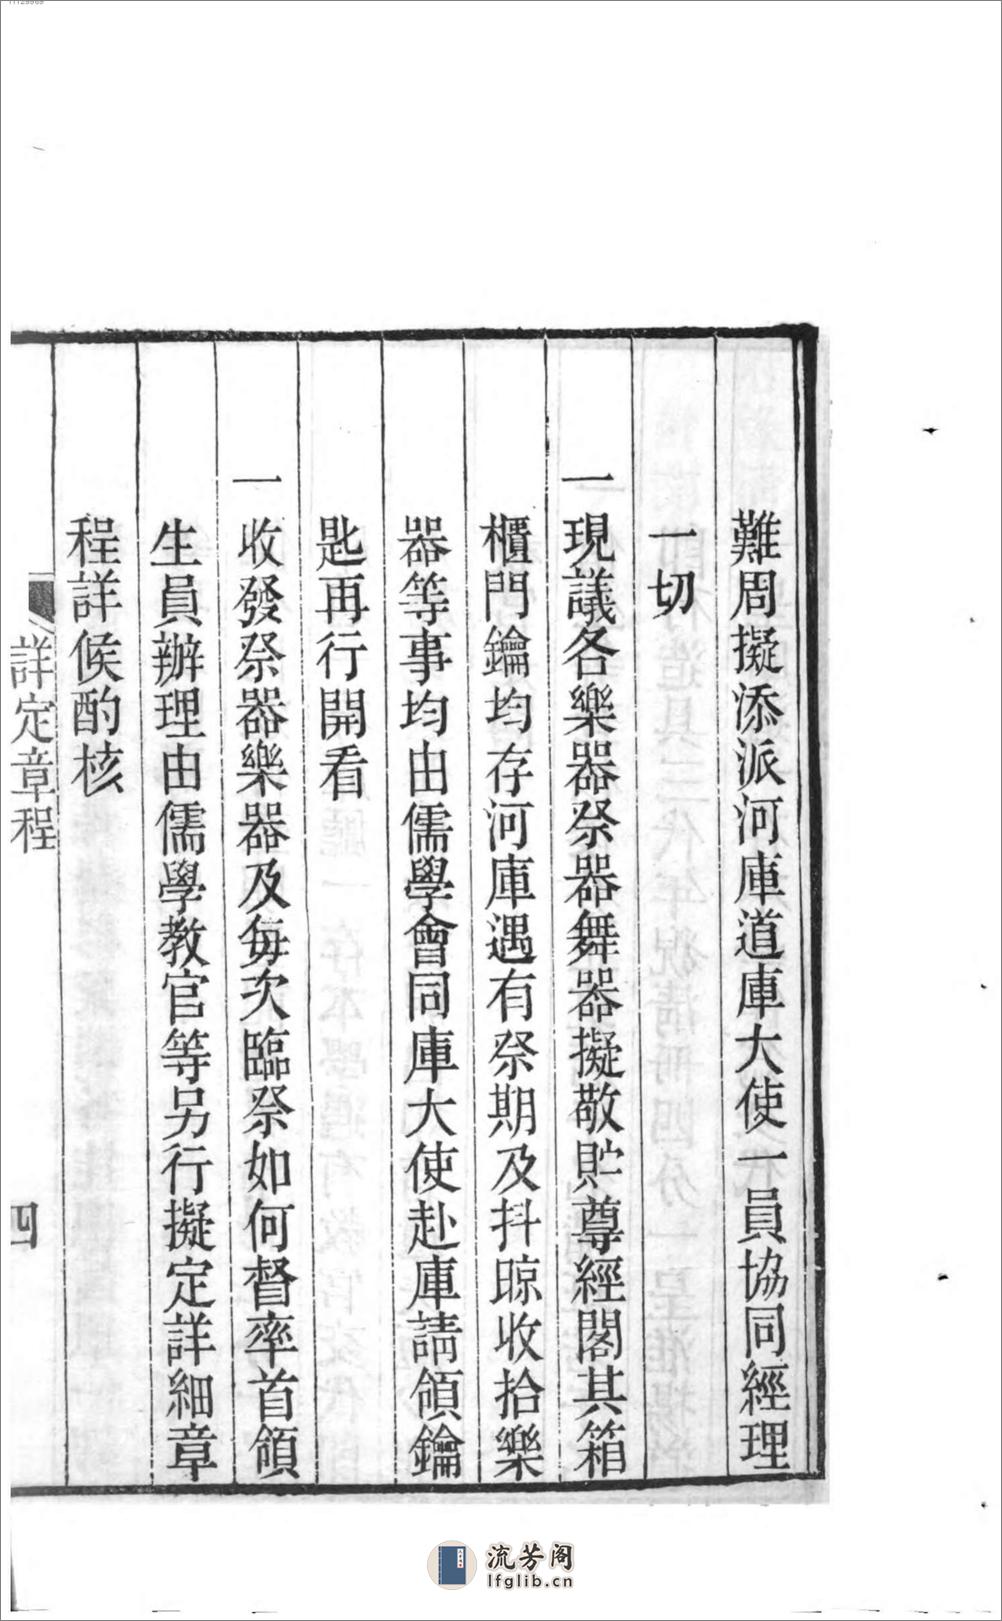 難周擬添派河庫道庫大使一員協同經理
一切
一現議各樂器祭器舞器擬敬貯尊經閣其箱
櫃門鑰均存河庫遇有祭期及抖晾收拾樂
器等事均由儒學會同庫大使赴庫請領鑰
匙再行開看
一收發祭器樂器及每次臨祭如何督率首領
生員辦理由儒學教官等另行擬定詳細章
程詳候酌核
詳定章程
四
流芳阁
lfglib.cn